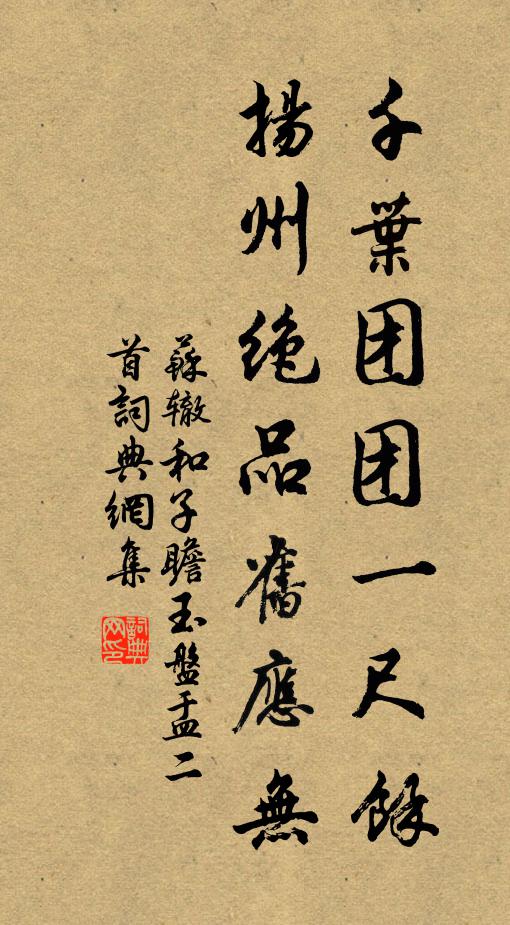 千葉团团一尺餘
揚州绝品舊應無
蘇辙和子瞻玉盤盂二
首詞典網集
詞典网印